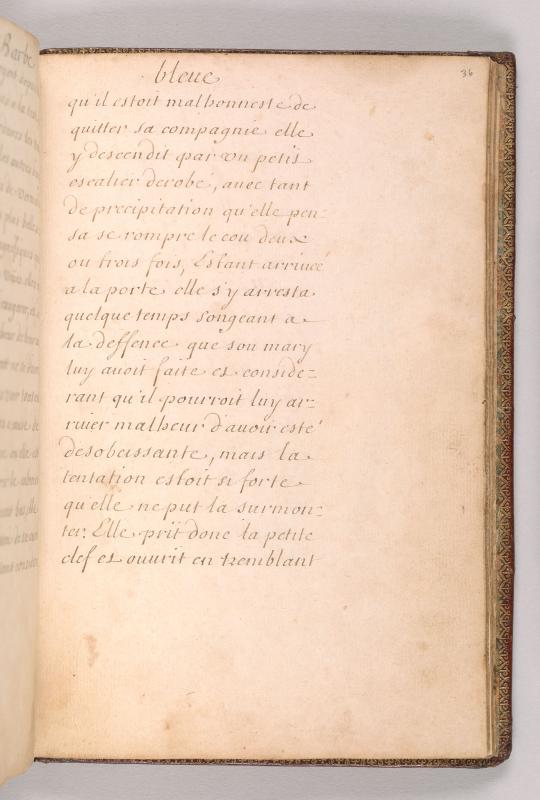 bleue
36
qu'il estoit malhonneste de
quitter sa compagnie elle
y descendit par vn petit
escalier derobé, auec tant
de precipitation qu'elle pen=
sa se rompre le cou deux
ou trois fois, Estant arriueé
a la porte elle s'y arresta
quelque temps songeant a
la deffence que son mary
luy auoit faite et conside=
rant qu'il pourroit luy ar=
riuer malheur d'auoir esté
desobeissante, mais la
tentation estoit si forte
qu'elle ne put la surmon=
ter: Elle prit donc la petite
clef et ouurit en tremblant